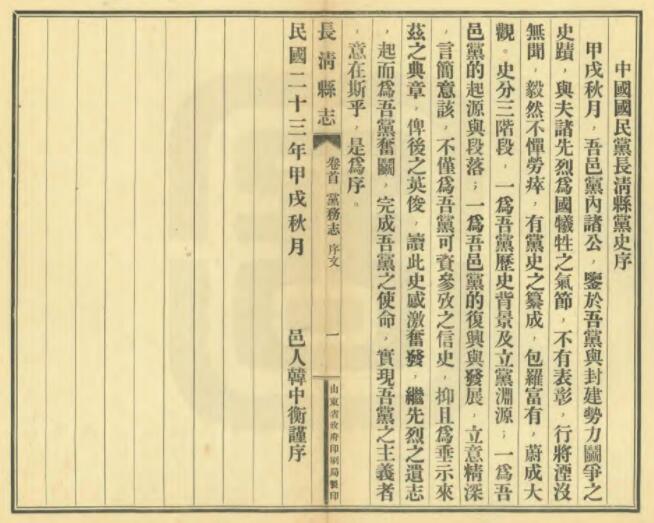 中國國民黨長清縣黨史序
甲戌秋月，吾邑黨內諸公，鑒於吾黨與封建勢力鬭爭之
史蹟，與夫諸先烈爲國犧牲之氣節，不有表彰，行將湮沒
無聞，毅然不憚勞瘁，有黨史之纂成，包羅富有，蔚成大
觀。史分三階段，一爲吾黨歷史背景及立黨淵源；一爲吾
邑黨的起源與段落；一爲吾邑黨的復興與發展，立意精深
，言簡意該，不僅爲吾黨可資參攷之信史，抑且爲垂示來
茲之典章，俾後之英俊，讀此史感激奮發，繼先烈之遺志
，起而爲吾黨奮鬭，完成吾黨之使命，實現吾黨之主義者
，意在斯乎，是爲序。
長清縣志
卷首 黨務志 序文
一
山東省政府印刷局製印
民國二十三年甲戌秋月 邑人韓中衡謹序